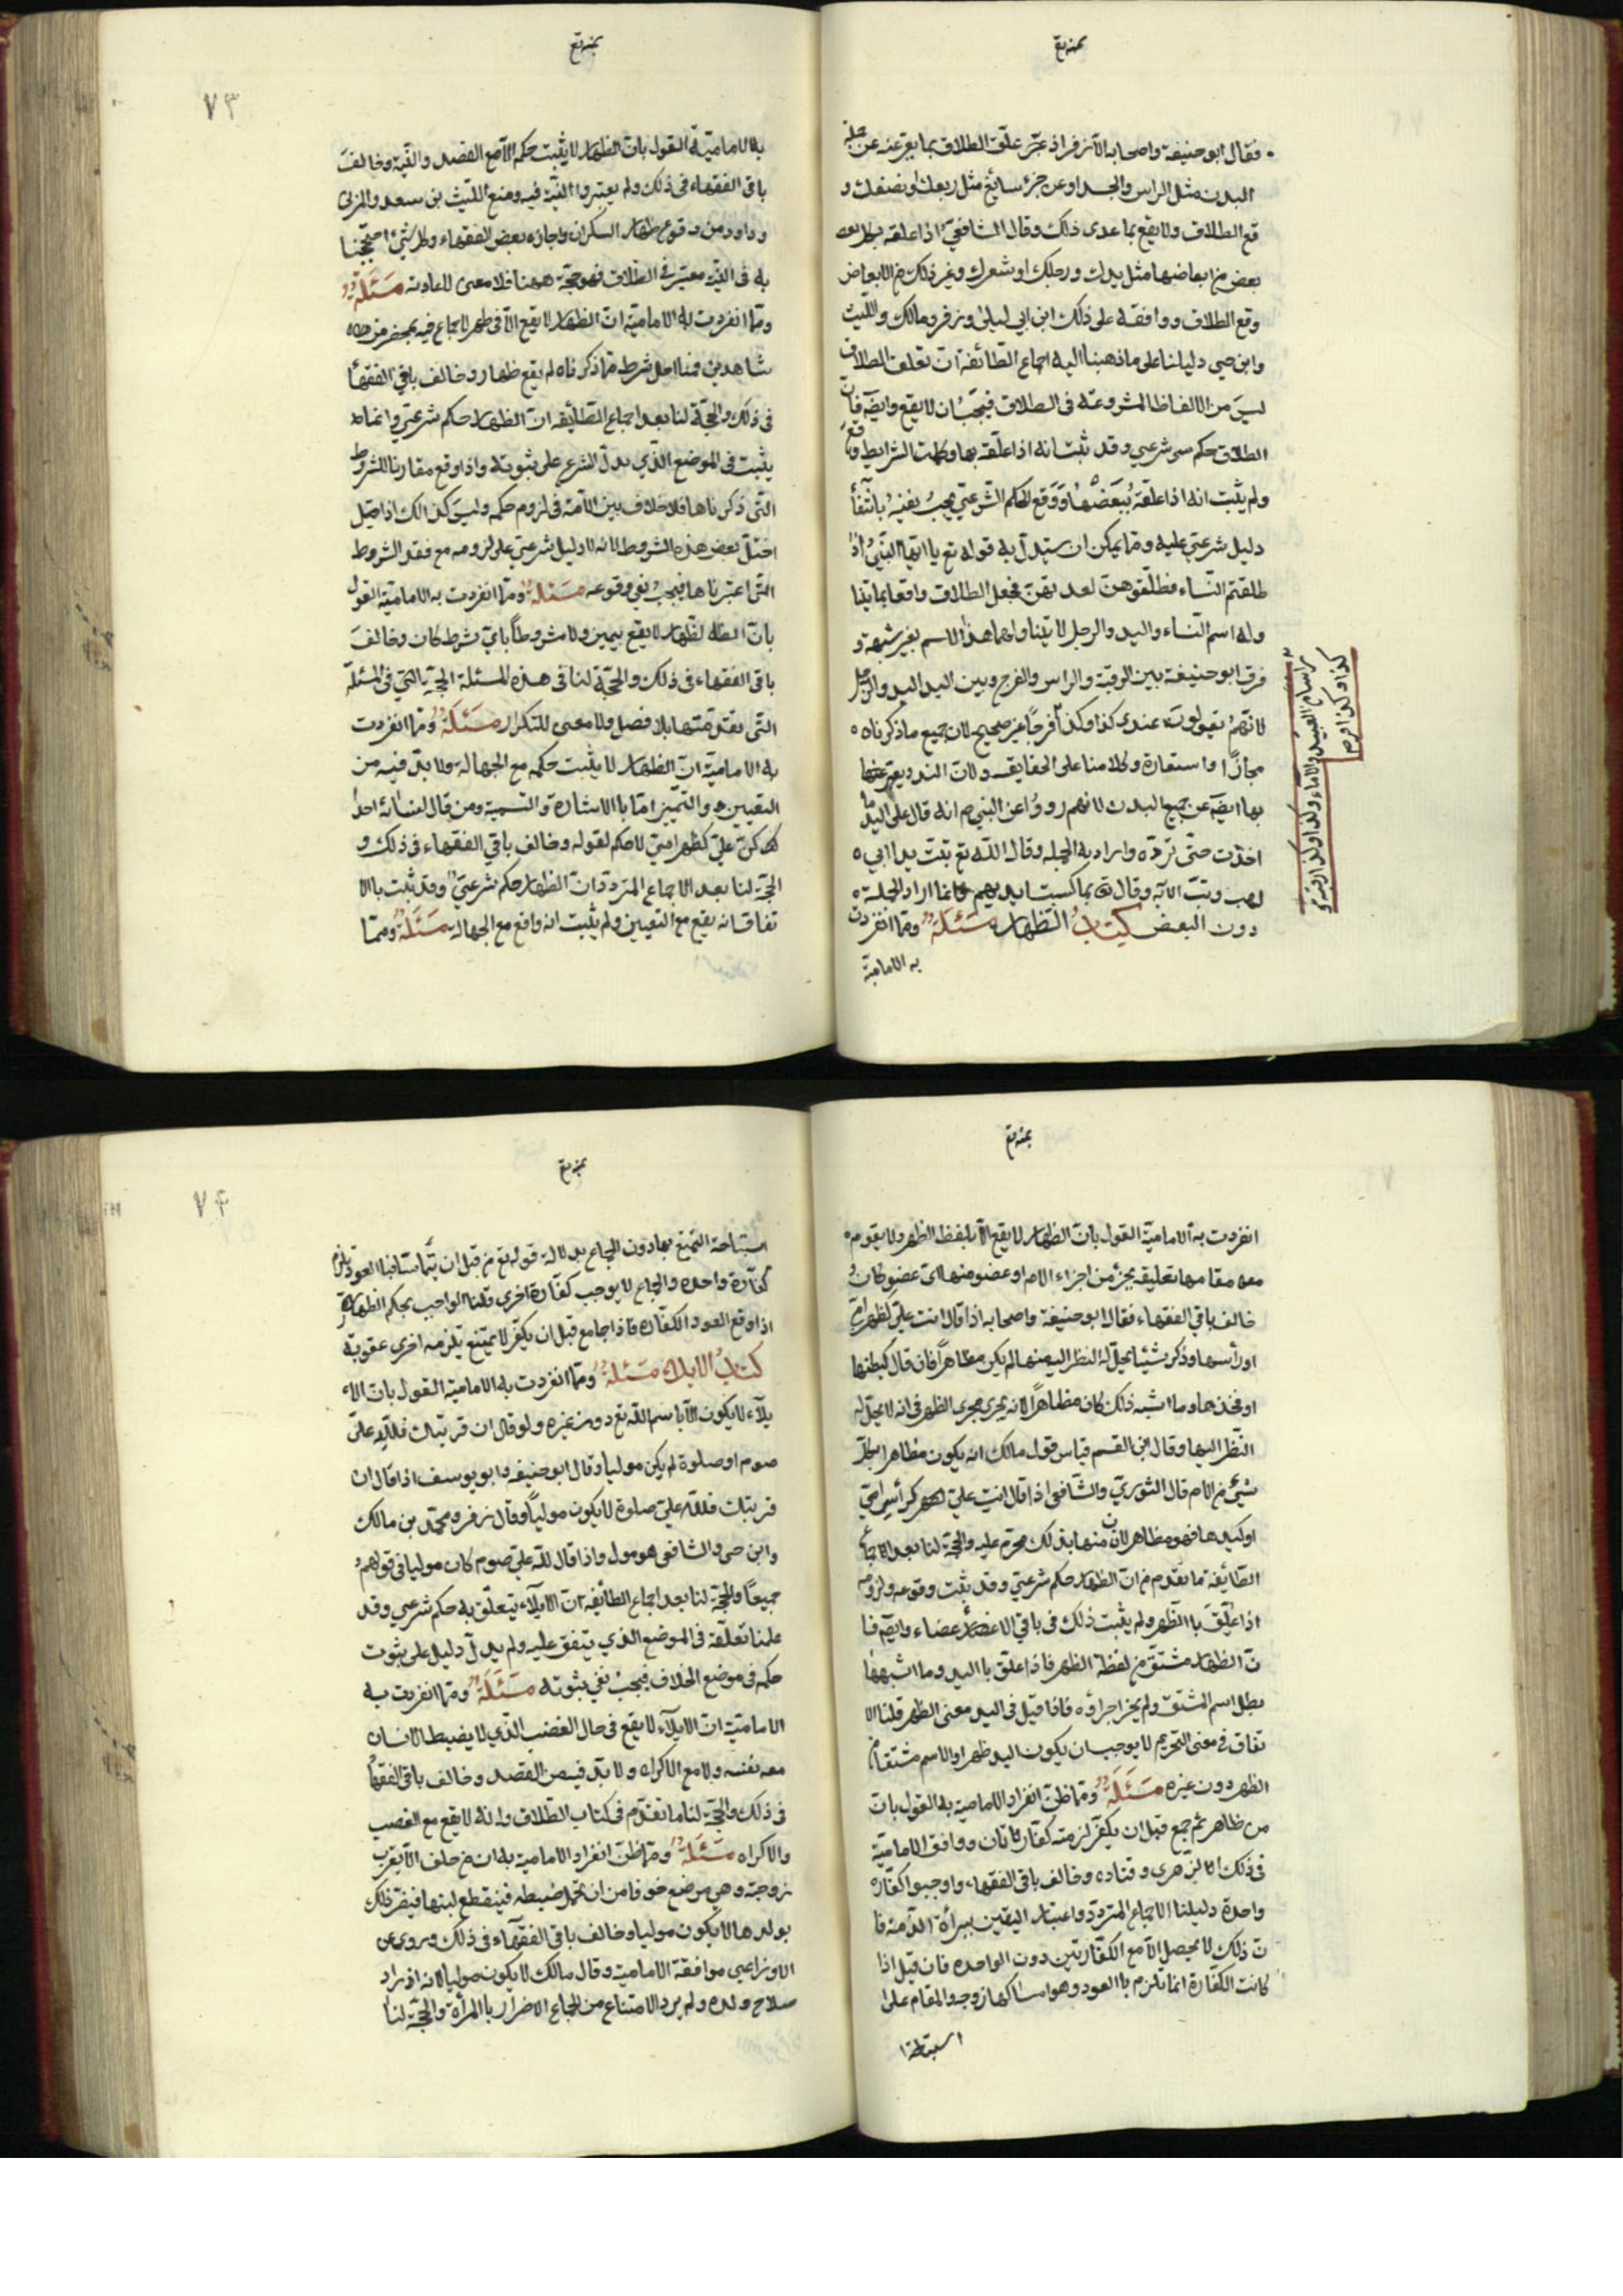 بمنه تع
فقال ابو حنيفة واصحابه الا زفر اذ عبّر علّق الطلاق بما يعبر عنه عن جملة
البدن مثل الراس والجسد او عن جزء سائغ مثل ربعك او نصفك و
قع الطلاق ولا يقع بما عدى ذلك وقال الشافعيّ اذا علقه
بعض من ابعاضها مثل يدك ورجلك او شعرك وغير ذلك من الابعاض
وقع الطلاق ووافقه على ذلك ابن ابي ليلى وزفر ومالك والليث
وابن حي دليلنا على ما ذهبنا اليه اجماع الطائفة انّ تعلق الطلاق
ليسَ من الالفاظ المشروعة فى الطلاق فيجبُ ان لا يقع وايضَ فانّ
الطلاق حكم شرعي وقد ثبت انه اذا علّقه بها وكملت الشرايط وقع
ولم يثبت انه اذا علقهُ ببعضها ووَقع الحكم الشّرعيّ يجبُ نفيهُ بانتفأ
دليل شرعيّ عليه ومّما يمكن ان يستدلّ به قوله تع يا ايّها النبّيُ اذا
طلقتم النّساء فطلّقوهنّ لعدّتهنّ فجعل الطلاق واقعا بما يتنا
وله اسم النّساء واليد والرجل لا يتناولهما هذا الاسم بغير شبهة و
فرق ابو حنيفة بين الرقبة والراس والفرج وبين اليد والرّجل
لانّهمُ يقولونَ عندى كذا وكذا فرجًا غير صحيح لان جميع ما ذكرناه
مجازًا واستعارة وكلامنا على الحقايق ولانّ اليد ويعبر
بها ايضَ عن جميع البدن لانهم رووُا عن النبي ص انه قال على اليد ما
اخذت حتى تردّه واراد به الجملة وقال اللّه تع تبّت يدا ابي
لهب وتبّ الآية وقال تع بما كسبت ايديهم فانما اراد الجملة
دون البعض كتابُ الظهار مَسْئَلَةٌ ومّما انفردت
به الامامية
كذا وكذا فرجا
من اسام العبيد والاماء وكذا وكذا رقبة و
بمنه تع
٧٣
به الاماميّة القول بانّ الظهار لا يثبت حكم الاّ مع القصد والنّية وخالفَ
باقى الفقهاء فى ذلك ولم يعتبروا النيّة فيه ومنع اللّيث بن سعد والمزنى
وداود من وقوع ظهار السكران واجازه بعض الفقهاء وكل شئ احتججنا
به فى انّ النيّة معتبر فى الطّلاق فهو حجّة ههنا فلا معنى لاعادته مَسْئَلَةٌ
ومّما انفردت به الامامية انّ الظهار لا يقع الاّ فى طهر لا جماع فيه بمحضر من
شاهدين فمتى اختل شرط مّما ذكرناه لم يقع ظهار وخالف باقي الفقهأ
فى ذلك والحجّة لنا بعد اجماع الطّائفه انّ الظهار حكم شرعيّ وانما
يثبت فى الموضع الذّي يدلّ الشرع على ثبوته واذا وقع مقارنا للشروط
التّى ذكرناها فلا خلاف بين الامّة فى لزوم حكمه وليسَ كذالك اذا
اختلّ بعض هذه الشروط لانه لا دليل شرعيّ على لزومه مع فقد الشروط
التّى اعتبرناها فيجبُ نفى وقوعه مَسْئلَةٌ ومّما انفردت به الاماميّة القول
بانّ الظهار لا يقع بيمين ولا مشروطاً بايّ شرط كان وخالفَ
باقى الفقهاء فى ذلك والحجّة لنا فى هذه المسئلة الحجّة التّى فى المسئلة
التّى تقدّمتها بلا فصل ولا معنى للتكرار مَسْئلَةٌ ومّما انفردت
به الاماميّة انّ الظهار لا يثبت حكمه مع الجهالة ولا بدّ فيه من
التعيين والتمّيز امّا بالاشارة او التسمية ومن قال لنسائه احدا
كنّ عليّ كظهر امىّ لا حكم لقوله وخالف باقي الفقهاء فى ذلك و
الحجّة لنا بعد الاجماع المتردّد انّ الظهار حكم شرعيّ وقد ثبت بالا
تفاق انه يقع مع التعيين ولم يثبت انه واقع مع الجهالة مَسْئلَةٌ ومّما
بمنه تع
انفردت به الاماميّة القول بانّ الظهار لا يقع الاّ بلفظ الظهر ولا يقوم
مقامها تعليقه بجزء من اجزاء الام او عضو منها اىّ عضو كانُ
خالف باقي الفقهاء فقال ابو حنيفة واصحابه اذا قال انت عليّ كظهر امّي
او رأسها وذكر شيئا يحلّ له النظر اليه منها لم يكن مظاهراً فان قال كبطنها
او فخذها وما اشبه ذلك كان مظاهراً لانه يجرى مجرى الظهر فى انه لا يحلّ له
النّظر اليها وقال ابن القسم قياس قول مالك انه يكون مظاهرا بكلّ
شئ من الام قال الثوريّ والشّافعى اذا قال انت عليّ كرأس امّي
او كيدها فهو مظاهر لانّ منها بذلك محرّم عليه والحجّة لنا بعد الاجماع
الطّايفة ما تقدّم من انّ الظهار حكم شرعيّ وقد ثبت وقوعه ولزومه
اذا علّقَ بالظّهر ولم يثبت ذلك فى باقي الاعضاء وايضَ فا
نّ الظهار مشتقّ من لفظة الظهر فاذا علّق باليد وما اشبهها
بطل اسم المشتقّ ولم يجز اجراؤه فاذا قيل فى اليد معنى الظهر قلنا الا
تفاق فى معنى التحريم لا يوجب ان يكون اليد ظهرا والاسم مشتقا من
الظهر دون غيره مَسْئَلَةٌ ومّما ظنّ انفراد الامامية به القول بانّ
من ظاهر ثم جمع قبل ان يكفّر لزمته كفّارتان ووافق الاماميّة
فى ذلك الزّهرى وقتاده وخالف باقي الفقهاء واوجبوا كفّارة
واحدة دليلنا الاجماع المتردّد واعتبار اليقين ببرأة الذّمة فا
نّ ذلك لا يحصل الاّ مع الكفّارتين دون الواحده فان قيل اذا
كانت الكفّارة انما تلزم بالعود وهو امساكها زوجه والمقام على
استباحة
بمنه تع
٧٤
استباحة التمتع بها دون الجماع بدلالة قوله تع من قبل ان يتّماسّا فبالعود يلزم
كفّارة واحده والجماع لا يوجب كفّارة اخرى وقلنا الواجب بحكم الظهار
اذا وقع العود الكفّاره فاذا جامع قبل ان يكفّر لا يمتنع يلزمه اخرى عقوبة
كتابُ الايلاء مَسْئلَةٌ ومّما انفردت به الامامية القول بانّ الا
يلآء لا يكون الاّ باسم اللّه تع دون غيره ولو قال ان قربتك فللّه عليّ
صوم او صلوة لم يكن موليا وقال ابو حنيفه وابو يوسف اذا قال ان
قربتك فللّه عليّ صلوة لا يكون موليًا وقال زفر ومحمّد بن مالك
وابن حى والشافعى هو مول واذا قال للّه عليّ صوم كان موليا فى قولهم
جميعًا والحجّة لنا بعد اجماع الطائفة انّ الايلآء يتعلّق به حكم شرعي وقد
علمنا تعلّقه فى الموضع الذي يتفق عليه ولم يدلّ دليل على ثبوت
حكمه فى موضع الخلاف فيجبُ نفي ثبوته مَسْئَلَةٌ ومّما انفردت به
الاماميّة انّ الايلآء لا يقع فى حال الغضب الذّي لا يضبط الانسان
معه نفسه ولا مع الاكراه ولا بدّ فيه من القصد وخالف باقى الفقهأ
فى ذلك والحجّة لنا ما تقدّم فى كتاب الطّلاق وانّه لا يقع مع الغضب
والاكراه مَسْئَلَةٌ ومّما ظنّ انفراد الامامية به ان من حلف الاّ يقرب
زوجته وهى مرضع خوفا من ان تحمل فينقطع لبنها فيضر ذلك
بولدها لا يكون موليا وخالف باقى الفقهآء فى ذلك وروى عن
الاوزاعي موافقة الامامية وقال مالك لا يكون موليا لانه اذ اراد
صلاح ولده ولم يرد الامتناع من الجماع الاضرار بالمرأة والحجّة لنا